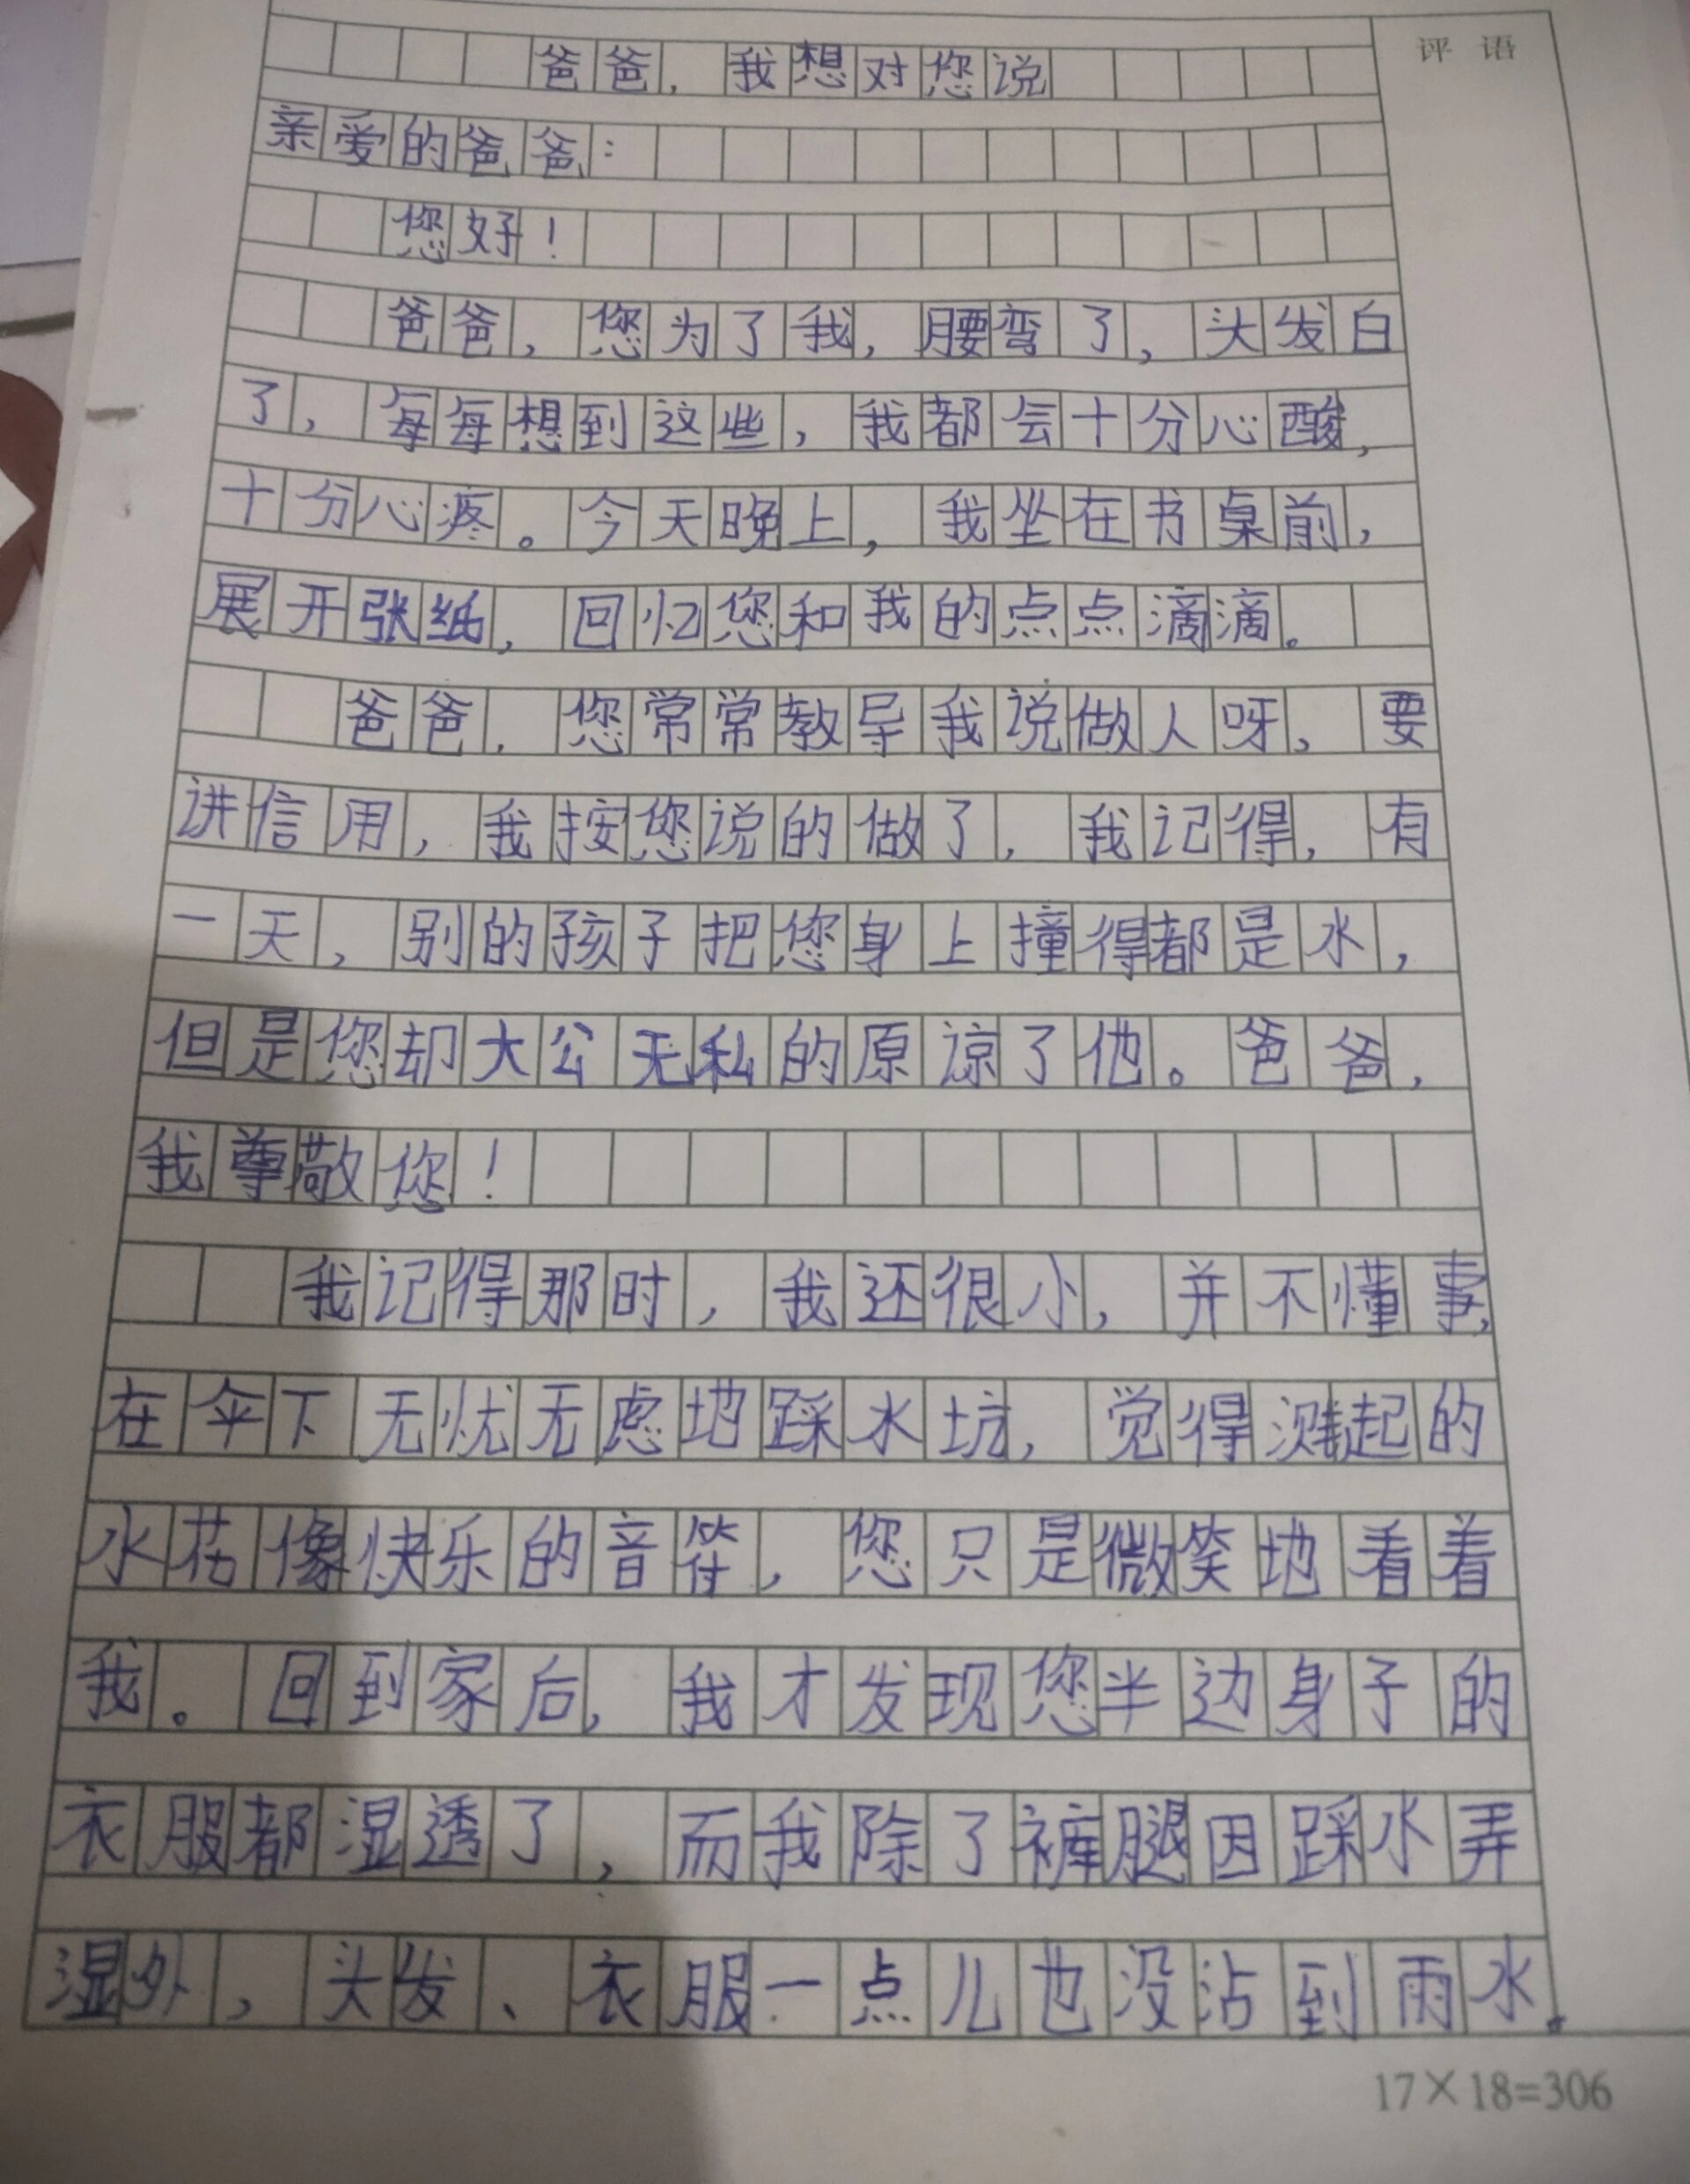 评语
爸爸，我想对您说
亲爱的爸爸：
您好！
爸爸，您为了我，腰弯了，头发白
了，每每想到这些，我都会十分心酸，
十分心疼。今天晚上，我坐在书桌前，
展开张纸，回忆您和我的点点滴滴。
爸爸，您常常教导我说做人呀，要
讲信用，我按您说的做了，我记得，有
一天，别的孩子把您身上撞得都是水，
但是您却大公无私的原谅了他。爸爸，
我尊敬您！
我记得那时，我还很小，并不懂事，
在伞下无忧无虑地踩水坑，觉得溅起的
水花像快乐的音符，您只是微笑地看着
我。回到家后，我才发现您半边身子的
衣服都湿透了，而我除了裤腿因踩水弄
湿外，头发、衣服一点儿也没沾到雨水。
17×18=306